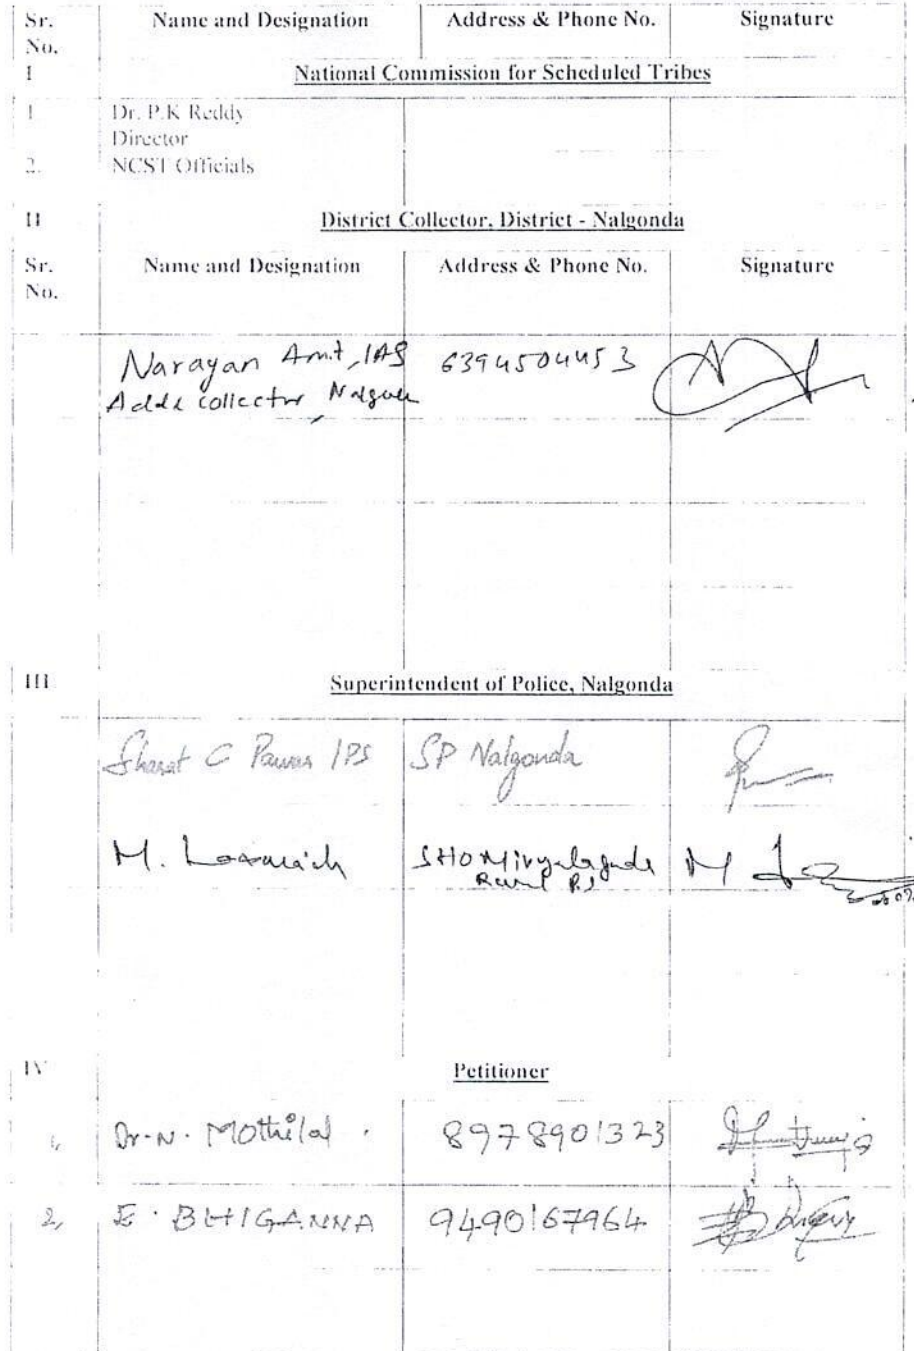 Sr. No. Name and Designation Address & Phone No. Signature
I National Commission for Scheduled Tribes
1 Dr. P.K Reddy
Director
2. NCST Officials
II District Collector, District - Nalgonda
Sr. No. Name and Designation Address & Phone No. Signature
Narayan Amit, IAS 6394504453
Addl collector,
III Superintendent of Police, Nalgonda
Sharat C Pawar IPS SP Nalgonda
M. SHO Miryalaguda M
Rural P.S
IV Petitioner
1, Dr. N. Mothilal. 8978901323
2, E. BHIGANNA 9490167964